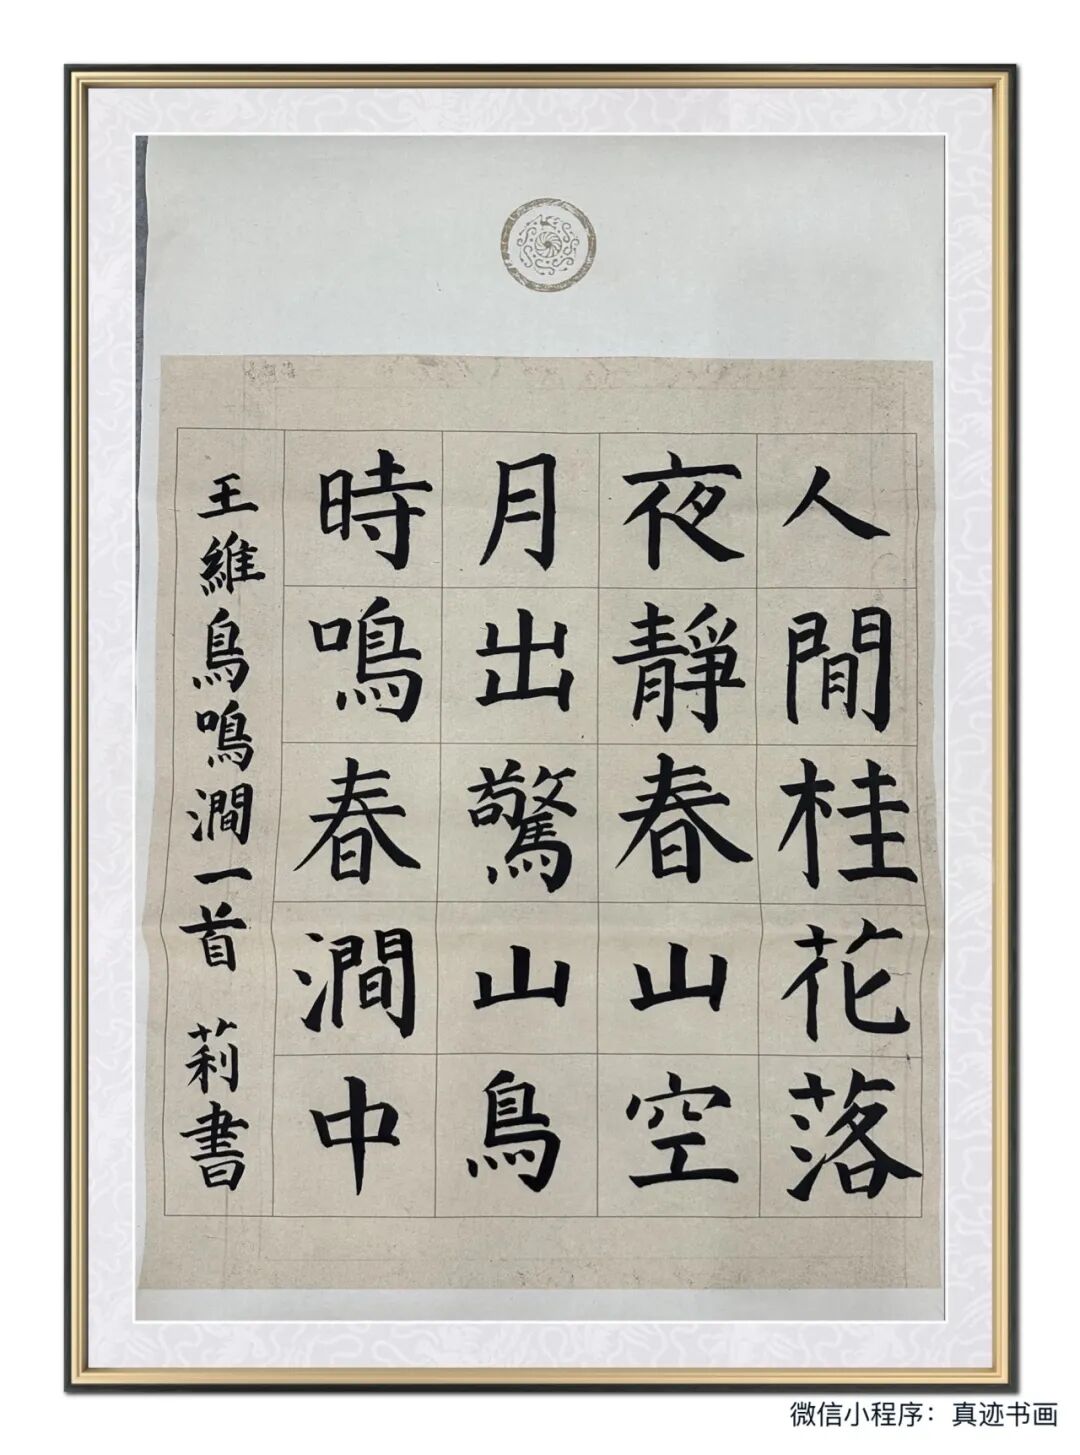 人間桂花落
夜靜春山空
月出驚山鳥
時鳴春澗中
王維鳥鳴澗一首 莉書
微信小程序：真迹书画